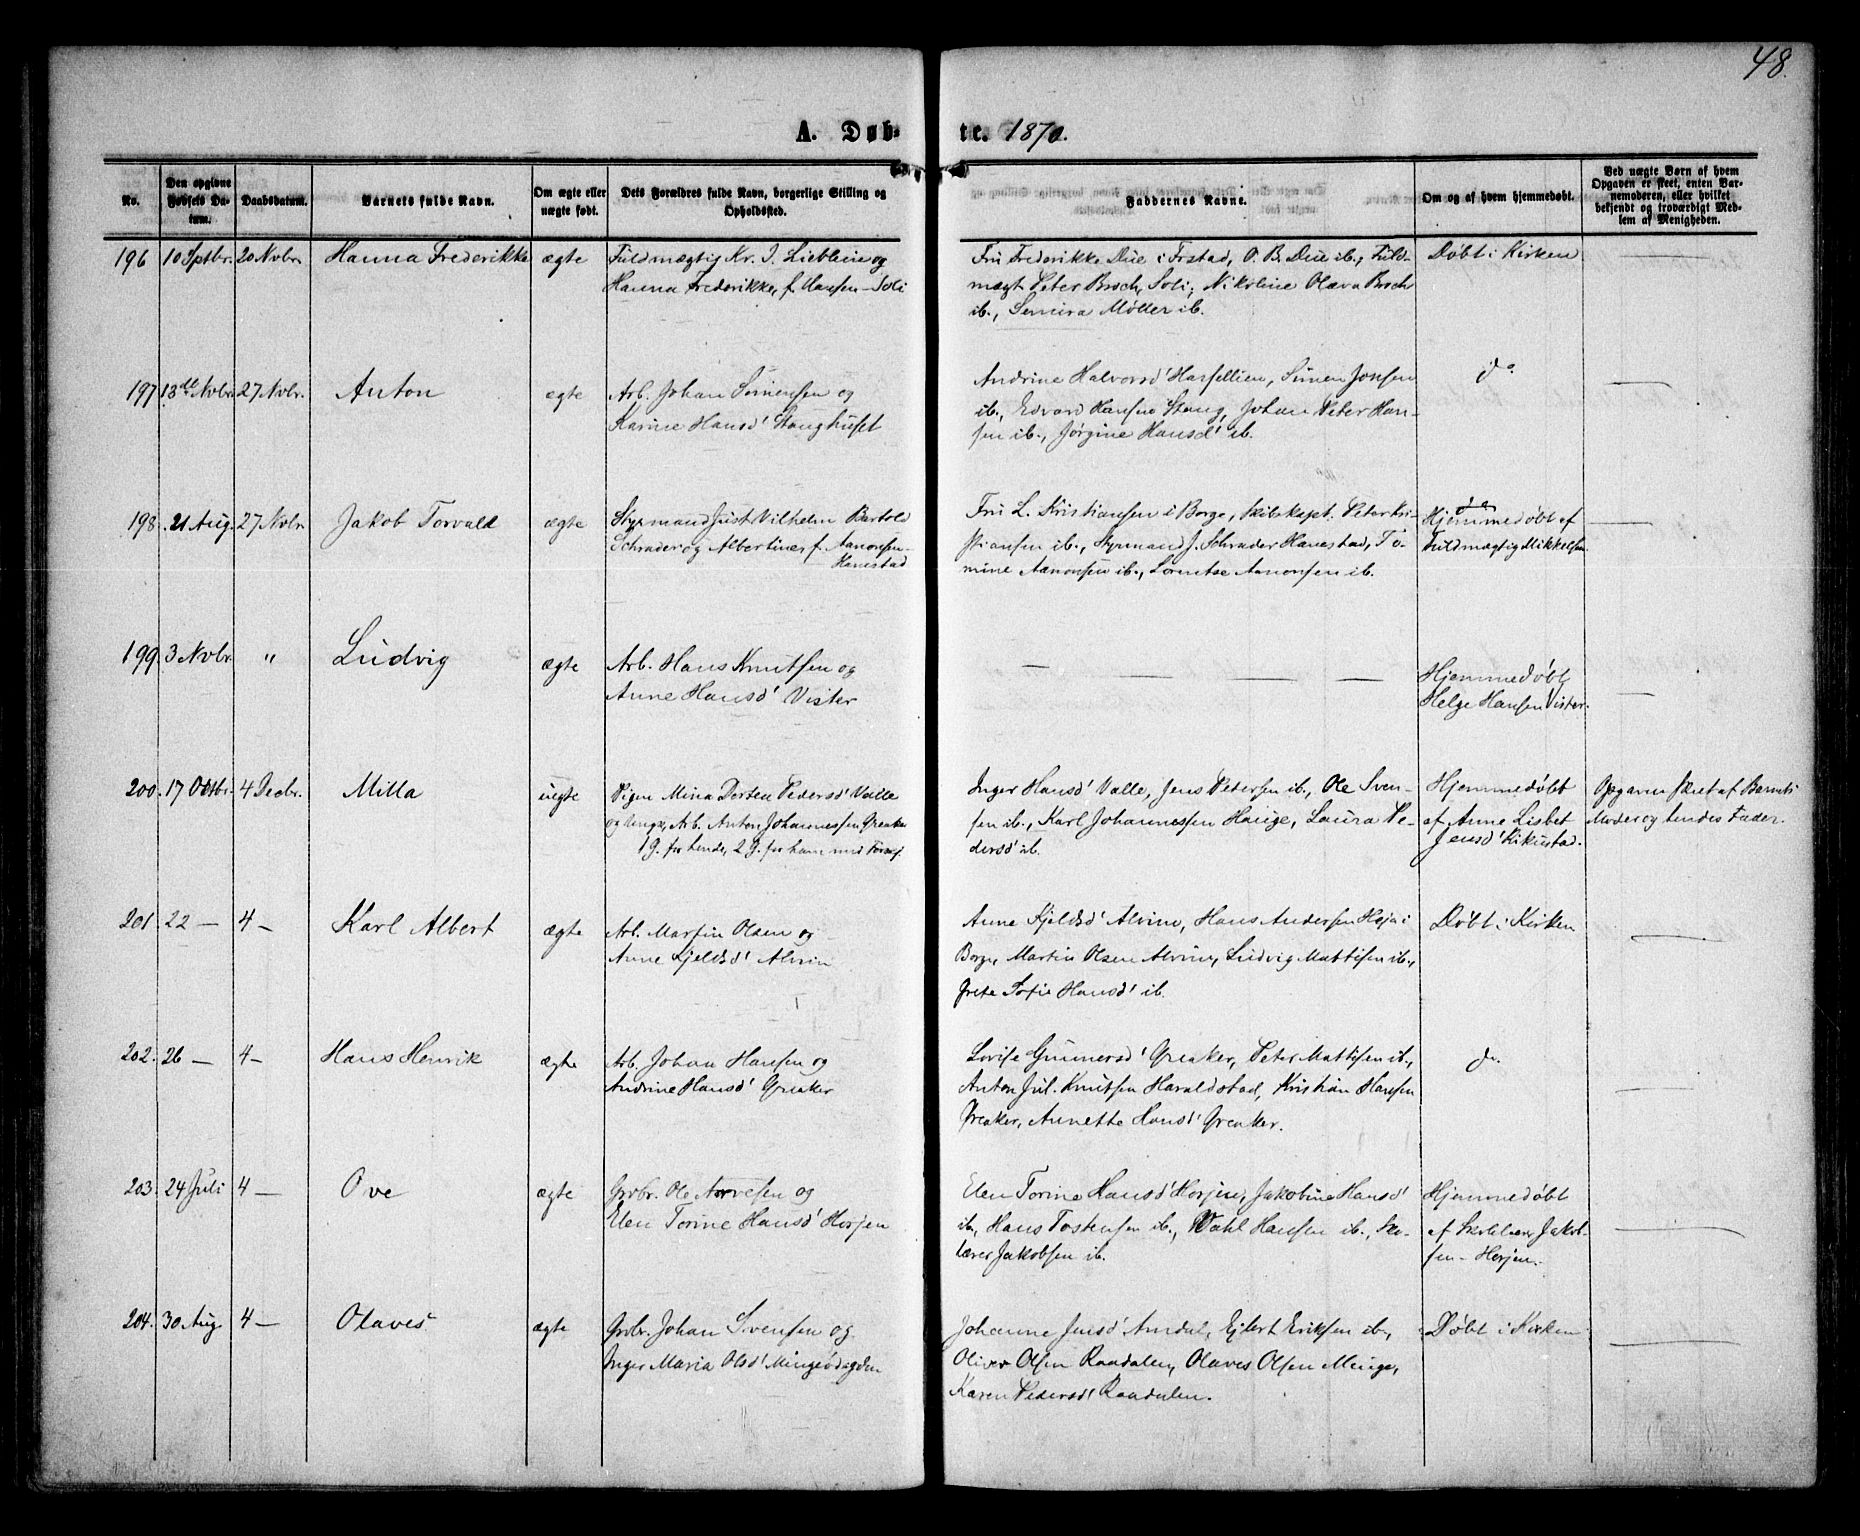 48.
A. Døb- te. 1870.
No.
Den opgivne Fødsels Datum.
Daabsdatum.
Barnets fulde Navn.
Om ægte eller uægte født.
Dets Forældres fulde Navn, borgerlige Stilling og Opholdssted.
Faddernes Navne.
Om og af hvem hjemmedøbt.
Ved uægte Børn af hvem Opgaven er skeet, enten Barnemoderen, eller hvilket bekjendt og troværdigt Medlem af Menigheden.
196 10 Sptbr. 20 Nvbr. Hanna Frederikke ægte Fuldmægtig Kr. J. Lieblein og
Hanna Frederikke, f. Hansen - Soli
Fru Frederikke Due i Frstad, O. B. Due ib., Fuld-
mægt Peter Broch, Soli; Nikoline Olava Broch
ib., Semira Møller ib.
Døbt i Kirken
197 13de Nvbr. 27 Nvbr. Anton ægte Arb. Johan Simensen og
Karine Hansd' Stanghuset
Andrine Halvorsd' Hasfellien, Simen Jonsen
ib., Edvard Hansen Stang, Johan Peter Han-
sen ib., Jørgine Hansd' ib.
do
198. 21 Aug. 27 Nvbr. Jakob Torvald ægte Styrmand Just Vilhelm Bertold
Schrader og Albertine f. Aanonsen
Hanestad
Fru L. Kristiansen i Borge, Skibskapt. Peter Kri-
stiansen ib., Styrmand J. Schrader Hanestad, To-
mine Aanonsen ib., Lorentse Aanonsen ib.
Hjemmedøbt af
Fuldmægtig Mikkelsen
199. 3 Nvbr. " Ludvig ægte Arb. Hans Knutsen og
Anne Hansd' Vister
Hjemmedøbt
Helge Hansen Vister
200. 17 Octbr. 4 Decbr. Milla uegte Pigen Mina Dortea Pedersd' Valle
og Ungk. Arb. Anton Johannessen Greaker
1 G. for hende, 2 G. for ham med
Inger Hansd' Valle, Jens Petersen ib., Ole Sven-
sen ib., Karl Johannessen Hauge, Laura Pe-
dersd' ib.
Hjemmedøbt
af Anne Lisbet
Jensd' Kikustad.
Opgaven skeet af Barnets
Moder og hendes Fader.
201. 22 — 4 — Karl Albert ægte Arb. Martin Olsen og
Anne Kjeldsd' Alvin
Anne Kjeldsd' Alvine, Hans Andersen Heja i
Borge, Martin Olsen Alvine, Ludvig Mattisen ib.,
Grete Sofie Hansd' ib.
Døbt i Kirken
202. 26 — 4 — Hans Henrik ægte Arb. Johan Hansen og
Andrine Hansd' Greaker
Lovise Gunnersd' Greaker, Peter Mattisen ib.,
Anton Jul. Knutsen Haraldstad, Kristian Hansen
Greaker, Annette Hansd' Greaker.
do
203. 24 Juli 4 — Ove ægte Grbr. Ole Arvesen og
Elen Torine Hansd' Horjen
Elen Torine Hansd' Horjen, Jakobine Hansd'
ib., Hans Tostensen ib., Wahl Hansen ib., Sko-
lærer Jakobsen ib.
Hjemmedøbt
af Skolelærer Jakob-
sen - Horjen.
204. 30 Aug. 4 — Olaves ægte Grbr. Johan Svensen og
Inger Maria Olsd' Mingeødegden
Johanne Jensd' Amdal, Ejlert Eriksen ib.,
Oliver Olsen Raadalen, Olaves Olsen Minge,
Karen Pedersd' Raadalen.
Døbt i Kirken